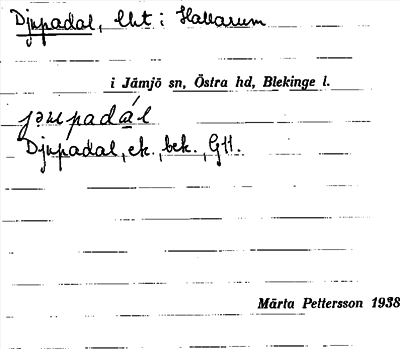 Djupadal, lht i Hallarum
i Jämjö sn, Östra hd, Blekinge l.
Djupadal, ek., bek., GH.
Märta Pettersson 1938